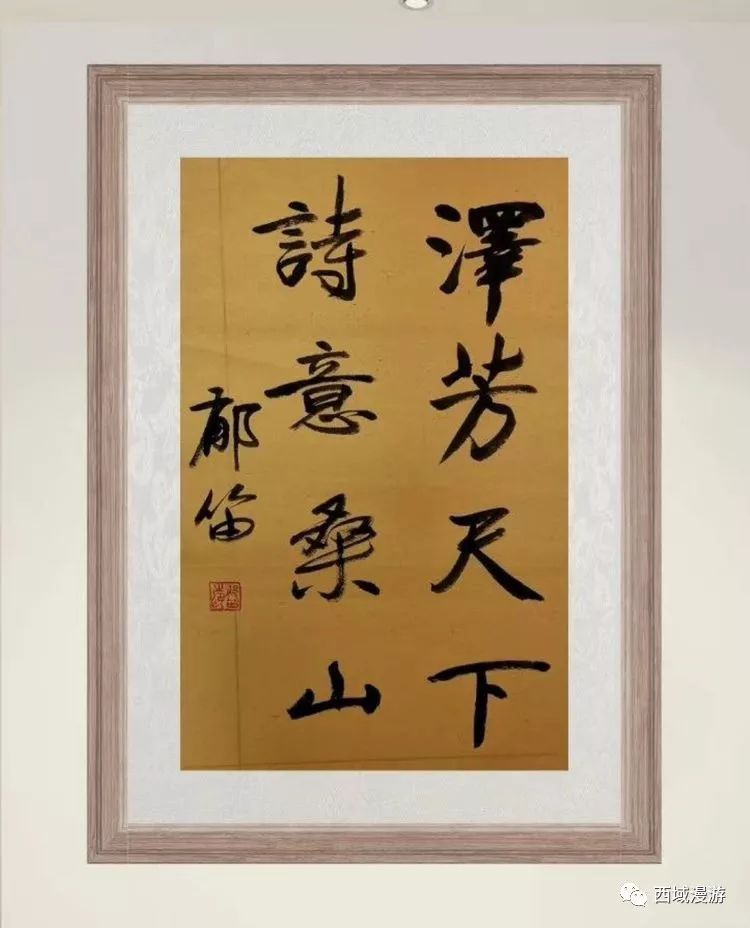 澤芳天下
詩意桑山
郁笛
西域漫游